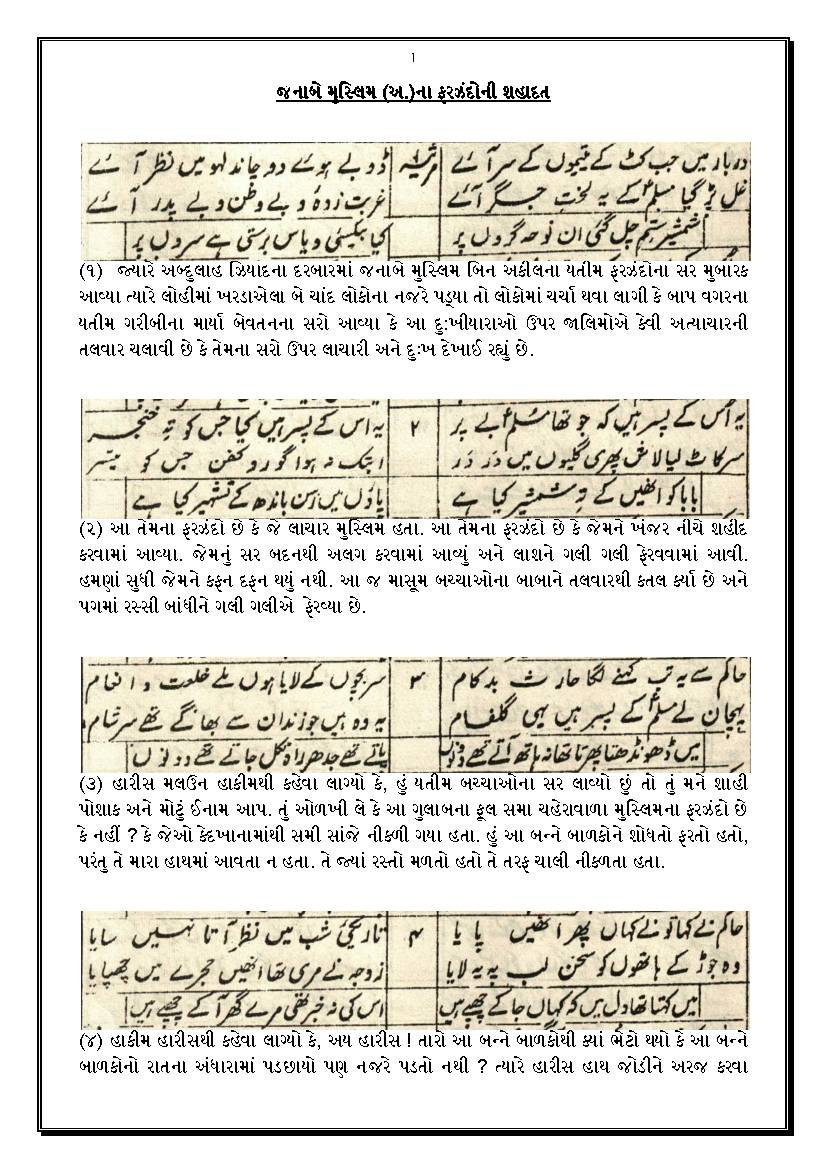 1
જનાબે મુસ્લિમ (અ.)ના ફરઝંદોની શહાદત
دربار میں جب کٹ کے یتیموں کے سر آئے مرثیہ ڈوبے ہوئے دو چاند لہو میں نظر آئے
غل پڑ گیا مسلمؑ کے یہ لختِ جگر آئے غربت زدہ و بے وطن و بے پدر آئے
شمشیرِ ستم چل گئی ان نوحہ گروں پر کیا بیکسی و یاس برستی ہے سروں پر
(૧) જ્યારે અબ્દુલાહ ઝિયાદના દરબારમાં જનાબે મુસ્લિમ બિન અકીલના યતીમ ફરઝંદોના સર મુબારક
આવ્યા ત્યારે લોહીમાં ખરડાએલા બે ચાંદ લોકોના નજરે પડ્યા તો લોકોમાં ચર્ચા થવા લાગી કે બાપ વગરના
યતીમ ગરીબીના માર્યા બેવતનના સરો આવ્યા કે આ દુ:ખીયારાઓ ઉપર જાલિમોએ કેવી અત્યાચારની
તલવાર ચલાવી છે કે તેમના સરો ઉપર લાચારી અને દુઃખ દેખાઈ રહ્યું છે.
یہ اُس کے پسر ہیں کہ جو تھا مسلمؑ بے پر ۲ یہ اس کے پسر ہیں کیا جس کو تہِ خنجر
سر کاٹ لیا لاش پھری گلیوں میں در در ابتک نہ ہوا گور و کفن جس کو میسر
بابا کو انھیں کے تہِ شمشیر کیا ہے پاؤں میں رسن باندھ کے تشہیر کیا ہے
(૨) આ તેમના ફરઝંદો છે કે જે લાચાર મુસ્લિમ હતા. આ તેમના ફરઝંદો છે કે જેમને ખંજર નીચે શહીદ
કરવામાં આવ્યા. જેમનું સર બદનથી અલગ કરવામાં આવ્યું અને લાશને ગલી ગલી ફેરવવામાં આવી.
હમણાં સુધી જેમને કફન દફન થયું નથી. આ જ માસૂમ બચ્ચાઓના બાબાને તલવારથી કતલ કર્યા છે અને
પગમાં રસ્સી બાંધીને ગલી ગલીએ ફેરવ્યા છે.
حاکم سے یہ تب کہنے لگا حارث بدکام ۳ سر بچوں کے لایا ہوں ملے خلعت و انعام
پہچان لے مسلمؑ کے پسر ہیں یہی گلفام یہ وہ ہیں جو زندان سے بھاگے تھے سرِ شام
میں ڈھونڈھتا پھرتا تھا نہ ہاتھ آتے تھے دونوں پاتے تھے جدھر راہ نکل جاتے تھے دونوں
(૩) હારીસ મલઉન હાકીમથી કહેવા લાગ્યો કે, હું યતીમ બચ્ચાઓના સર લાવ્યો છું તો તું મને શાહી
પોશાક અને મોટું ઈનામ આપ. તું ઓળખી લે કે આ ગુલાબના ફૂલ સમા ચહેરાવાળા મુસ્લિમના ફરઝંદો છે
કે નહીં ? કે જેઓ કેદખાનામાંથી સમી સાંજે નીકળી ગયા હતા. હું આ બન્ને બાળકોને શોધતો ફરતો હતો,
પરંતુ તે મારા હાથમાં આવતા ન હતા. તે જ્યાં રસ્તો મળતો હતો તે તરફ ચાલી નીકળતા હતા.
حاکم نے کہا تو نے کہاں پھر انھیں پایا ۴ تاریکیٔ شب میں نظر آتا نہیں سایا
وہ جوڑ کے ہاتھوں کو سخن لب پہ یہ لایا زوجہ نے مری تھا انھیں حجرے میں چھپایا
میں کہتا تھا دل میں کہ کہاں جا کے چھپے ہیں اس کی نہ خبر تھی مرے گھر آ کے چھپے ہیں
(૪) હાકીમ હારીસથી કહેવા લાગ્યો કે, અય હારીસ ! તારો આ બન્ને બાળકોથી ક્યાં ભેટો થયો કે આ બન્ને
બાળકોનો રાતના અંધારામાં પડછાયો પણ નજરે પડતો નથી ? ત્યારે હારીસ હાથ જોડીને અરજ કરવા